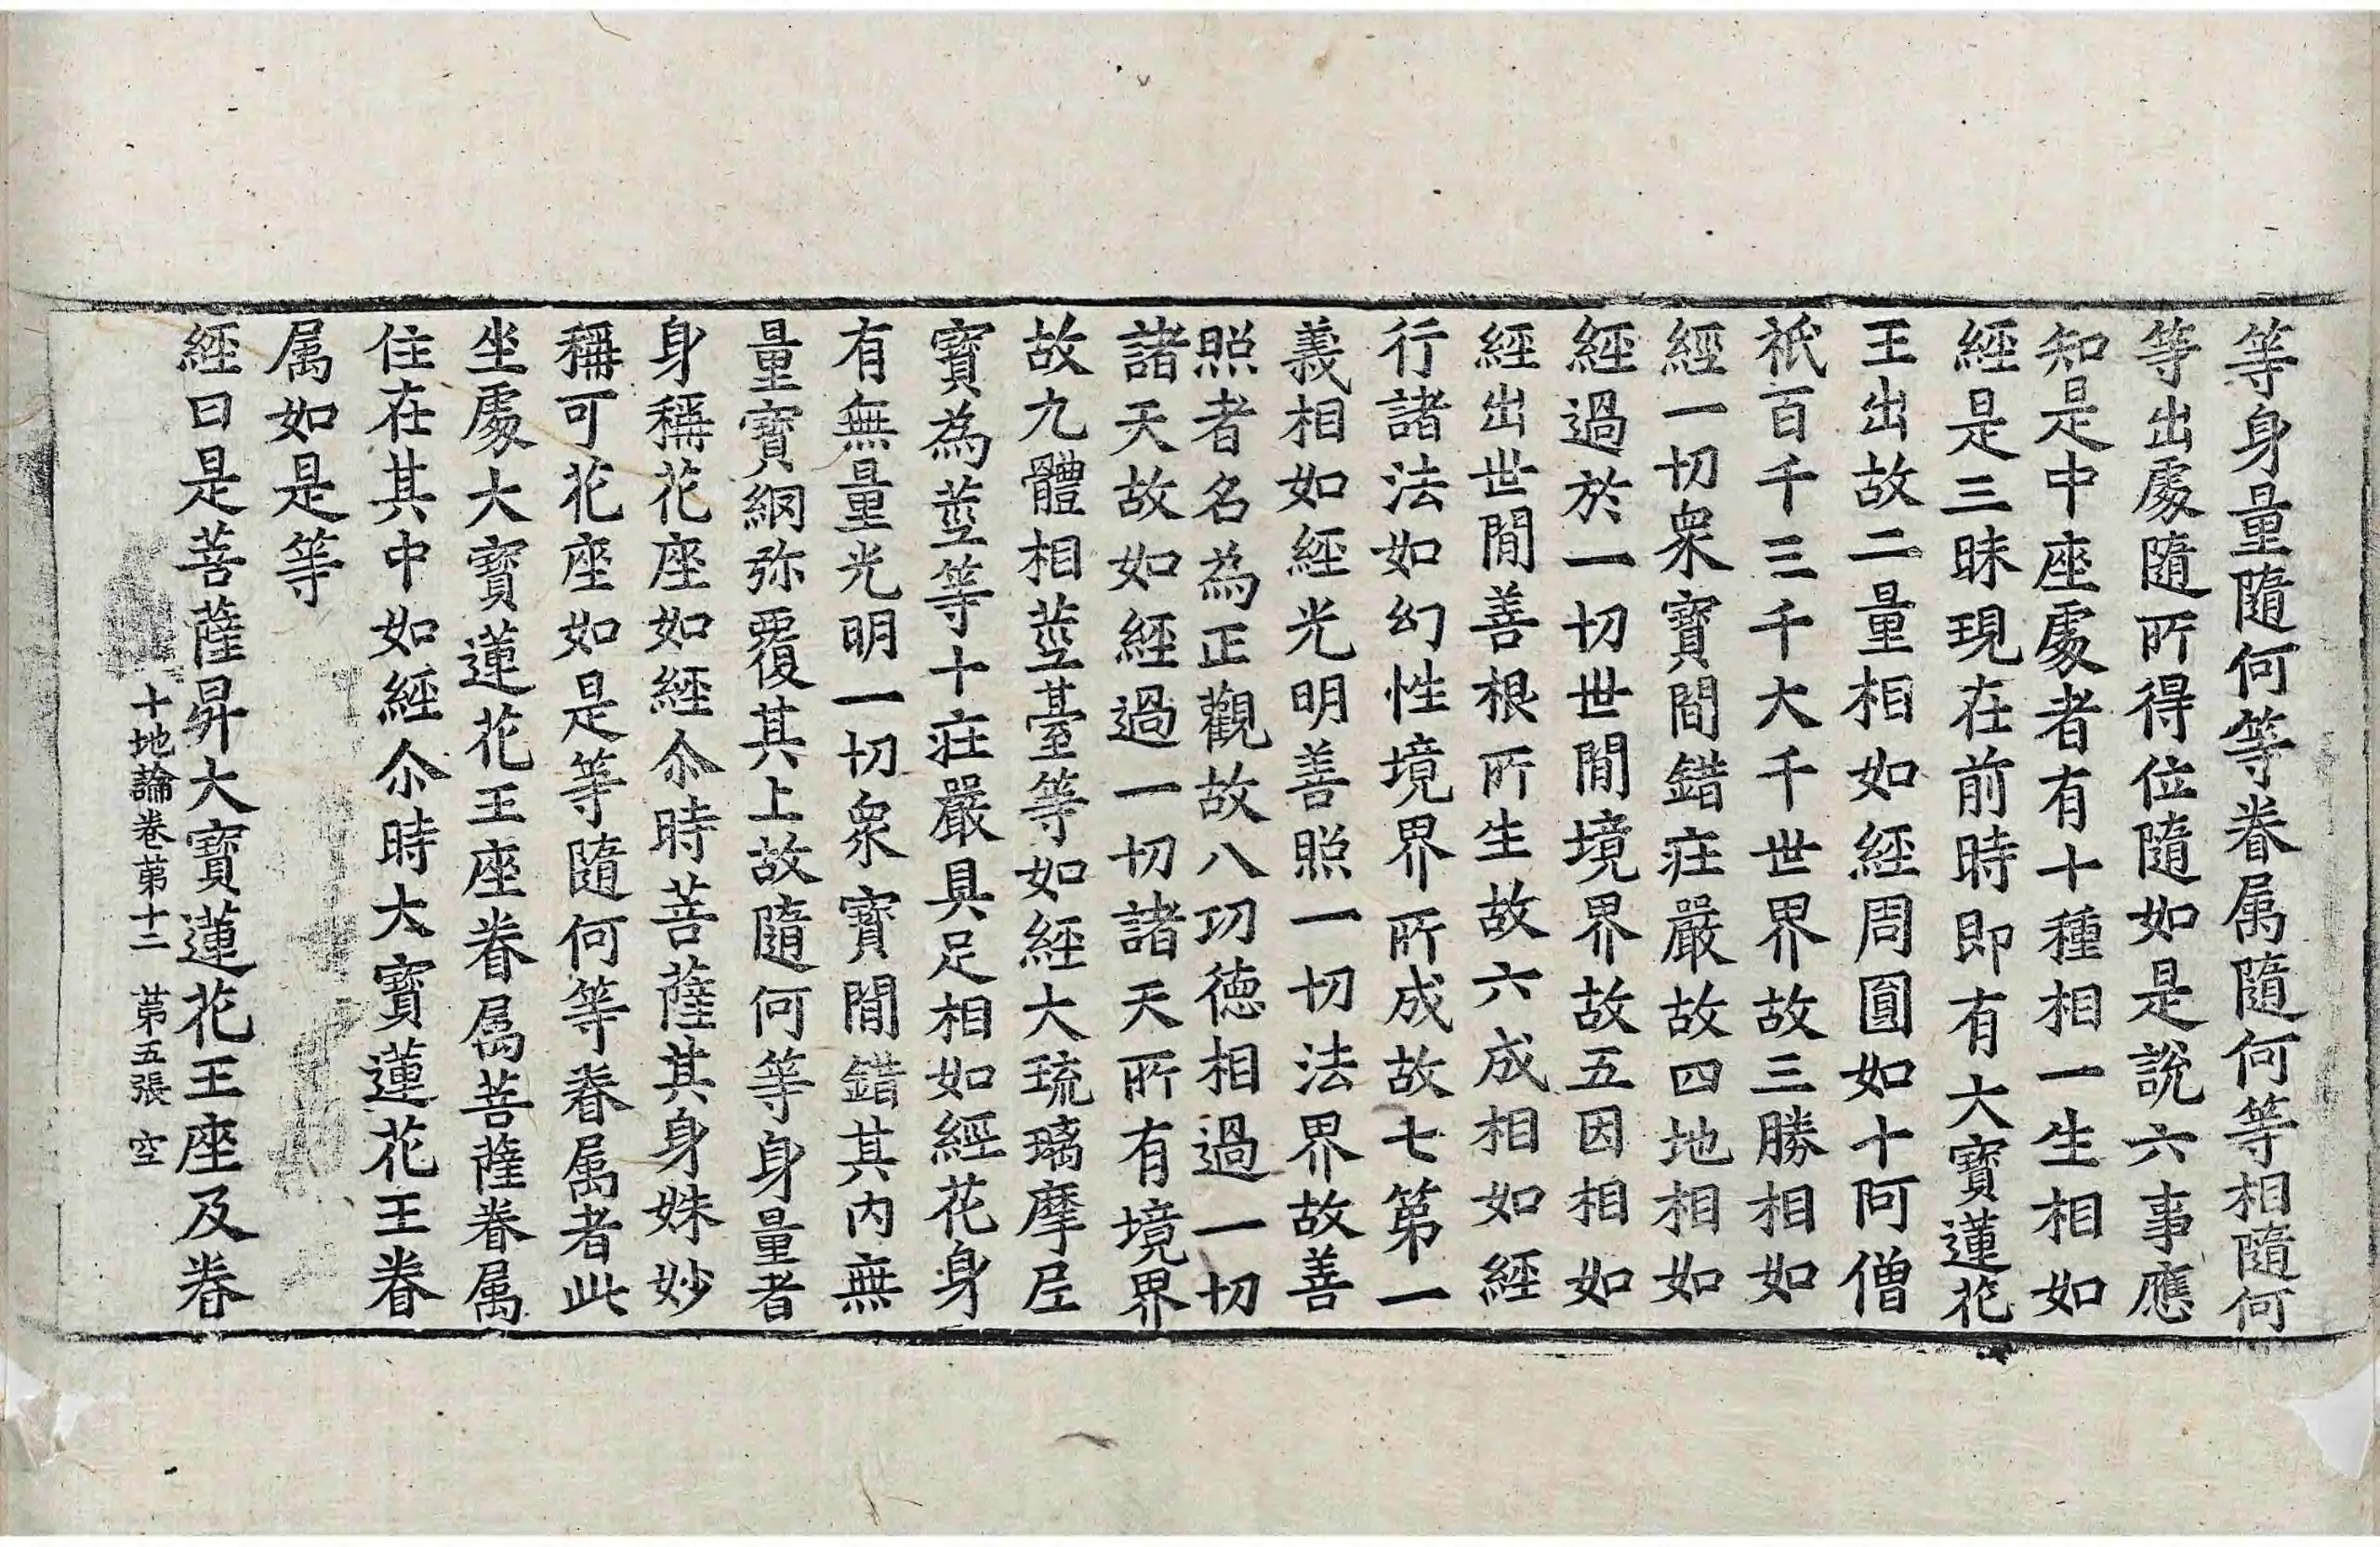 等身量隨何等眷属隨何等相隨何
等出處隨所得位隨如是說六事應
知是中座處者有十種相一生相如
經是三昧現在前時即有大寶蓮花
王出故二量相如經周圓如十阿僧
祇百千三千大千世界故三勝相如
經一切衆寶間錯莊嚴故四地相如
經過於一切世閒境界故五因相如
經出世閒善根所生故六成相如經
行諸法如幻性境界所成故七第一
義相如經光明善照一切法界故善
照者名為正觀故八功德相過一切
諸天故如經過一切諸天所有境界
故九體相莖臺等如經大琉璃摩尼
寶為莖等十莊嚴具足相如經花身
有無量光明一切衆寶間錯其內無
量寶網弥覆其上故隨何等身量者
身稱花座如經尒時菩薩其身姝妙
稱可花座如是等隨何等眷属者此
坐處大寶蓮花王座眷属菩薩眷属
住在其中如經尒時大寶蓮花王眷
属如是等
經曰是菩薩昇大寶蓮花王座及眷
十地論卷苐十二 苐五張 空